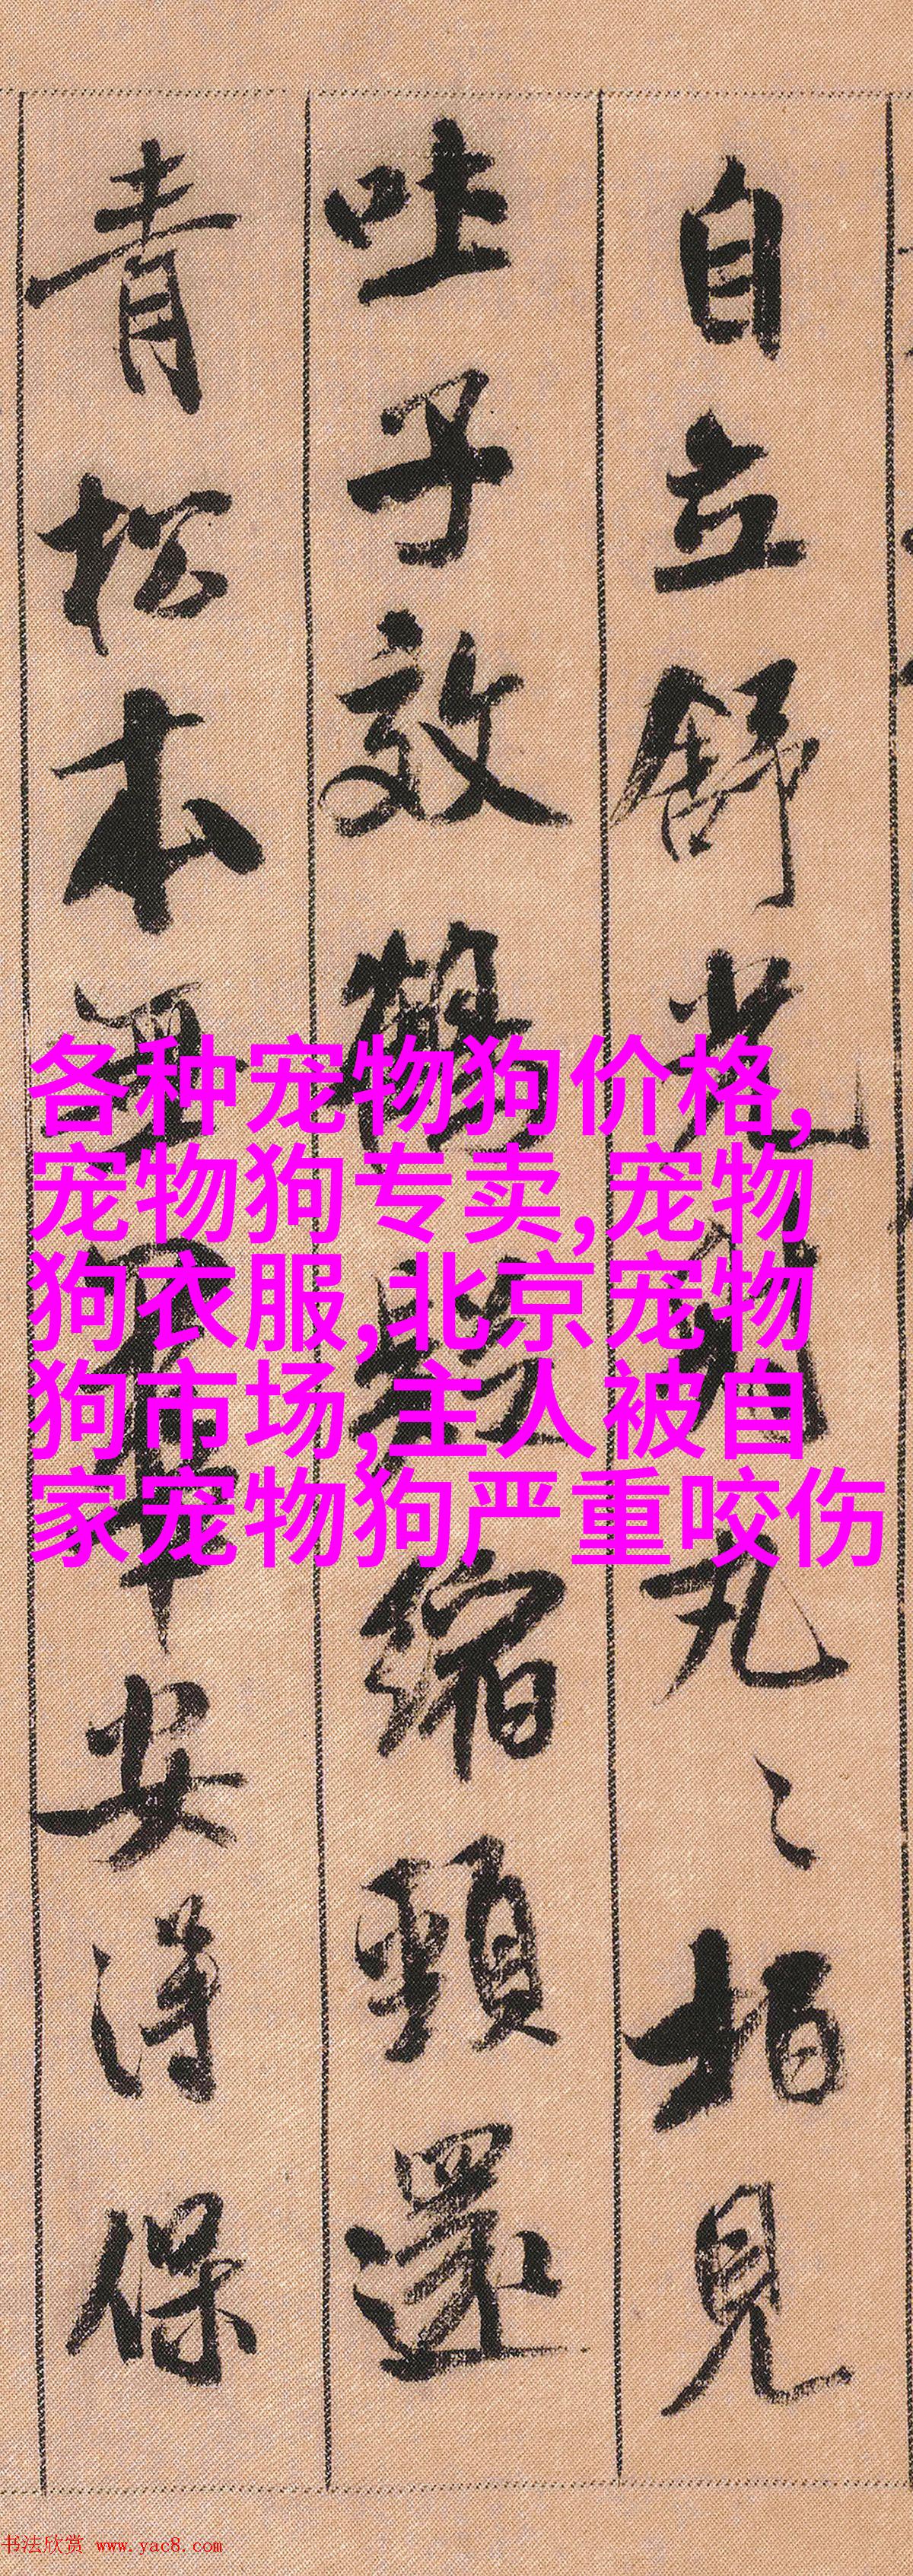 自立舒光射丸〻柏見
吐子效鶴疑縮頸還
青松本無華安得保
各种宠物狗价格,
宠物狗专卖,宠物
狗衣服,北京宠物
狗市场,主人被自
家宠物狗严重咬伤
书法欣赏 www.yac8.com